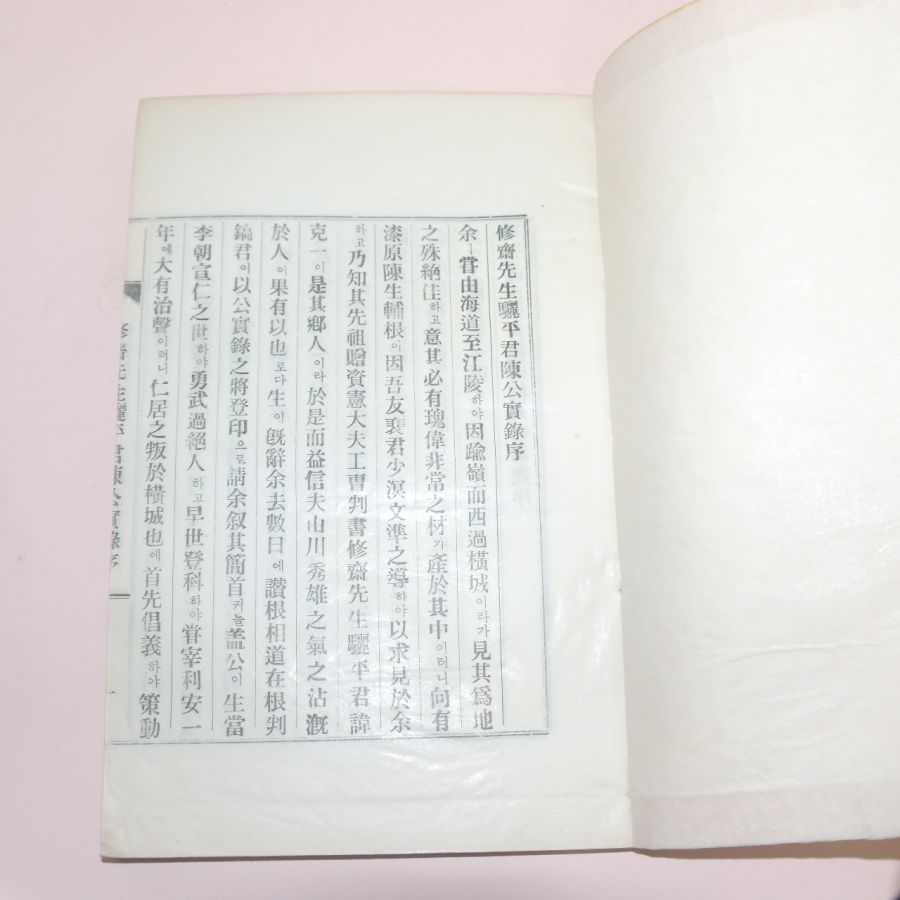 修齋先生驪平君陳公實錄序
余ㅣ甞由海道至江陵하야因踰嶺而西過橫城이라가見其爲地
之殊絶佳하고意其必有瑰偉非常之材가產於其中이러니向有
漆原陳生輔根이因吾友裵君少溟文準之導하야以求見於余
하고乃知其先祖贈資憲大夫工曺判書修齋先生驪平君諱
克一이是其鄕人이라於是而益信夫山川秀雄之氣之沾漑
於人이果有以也로다生이旣辭余去數日에讚根相道在根判
鎬君이以公實錄之將登印으로請余叙其簡首커늘盖公이生當
李朝宣仁之世하야勇武過絶人하고早世登科하야甞宰利安一
年에大有治聲이러니仁居之叛於橫城也에首先倡義하야策動
修齋先生驪平君陳公實錄序
一